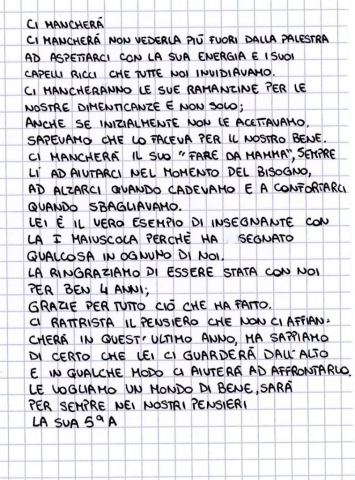 CI MANCHERÁ
CI MANCHERÁ NON VEDERLA PIÚ FUORI DALLA PALESTRA
AD ASPETTARCI CON LA SUA ENERGIA E I SUOI
CAPELLI RICCI CHE TUTTE NOI INVIDIAVAMO.
CI MANCHERANNO LE SUE RAMANZINE PER LE
NOSTRE DIMENTICANZE E NON SOLO;
ANCHE SE INIZIALMENTE NON LE ACETTAVAMO.
SAPEVAMO CHE LO FACEVA PER IL NOSTRO BENE.
CI MANCHERÁ IL SUO "FARE DA MAMMA", SEMPRE
LÌ AD AIUTARCI NEL MOMENTO DEL BISOGNO,
AD ALZARCI QUANDO CADEVAMO E A CONFORTARCI
QUANDO SBAGLIAVAMO.
LEI É IL VERO ESEMPIO DI INSEGNANTE CON
LA I MAIUSCOLA PERCHÉ HA SEGNATO
QUALCOSA IN OGNUNO DI NOI.
LA RINGRAZIAMO DI ESSERE STATA CON NOI
PER BEN 4 ANNI;
GRAZIE PER TUTTO CIÓ CHE HA FATTO.
CI RATTRISTA IL PENSIERO CHE NON CI AFFIAN-
CHERÁ IN QUEST'ULTIMO ANNO, MA SAPPIAMO
DI CERTO CHE LEI CI GUARDERÁ DALL'ALTO
E IN QUALCHE MODO CI AIUTERÁ AD AFFRONTARLO.
LE VOGLIAMO UN MONDO DI BENE, SARÁ
PER SEMPRE NEI NOSTRI PENSIERI
LA SUA 5ª A